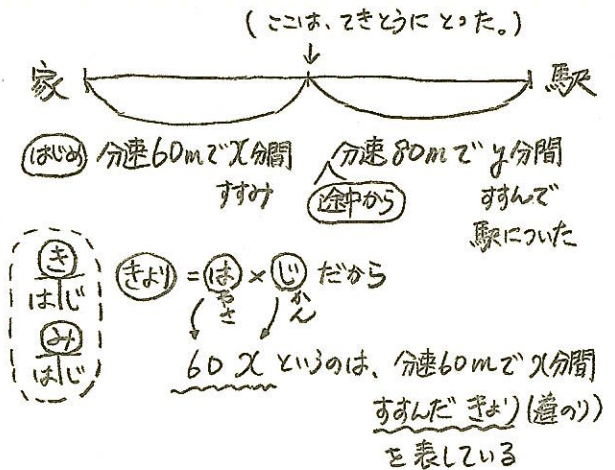 (ここは、てきとうに とった。)
↓
家 駅
はじめ 分速60mでx分間 すすみ
途中から 分速80mでy分間 すすんで 駅についた
き
はじ
み
はじ
きより = は × じ だから
やさ かん
60x というのは、分速60mでx分間
すすんだ きより(道のり)
を表している